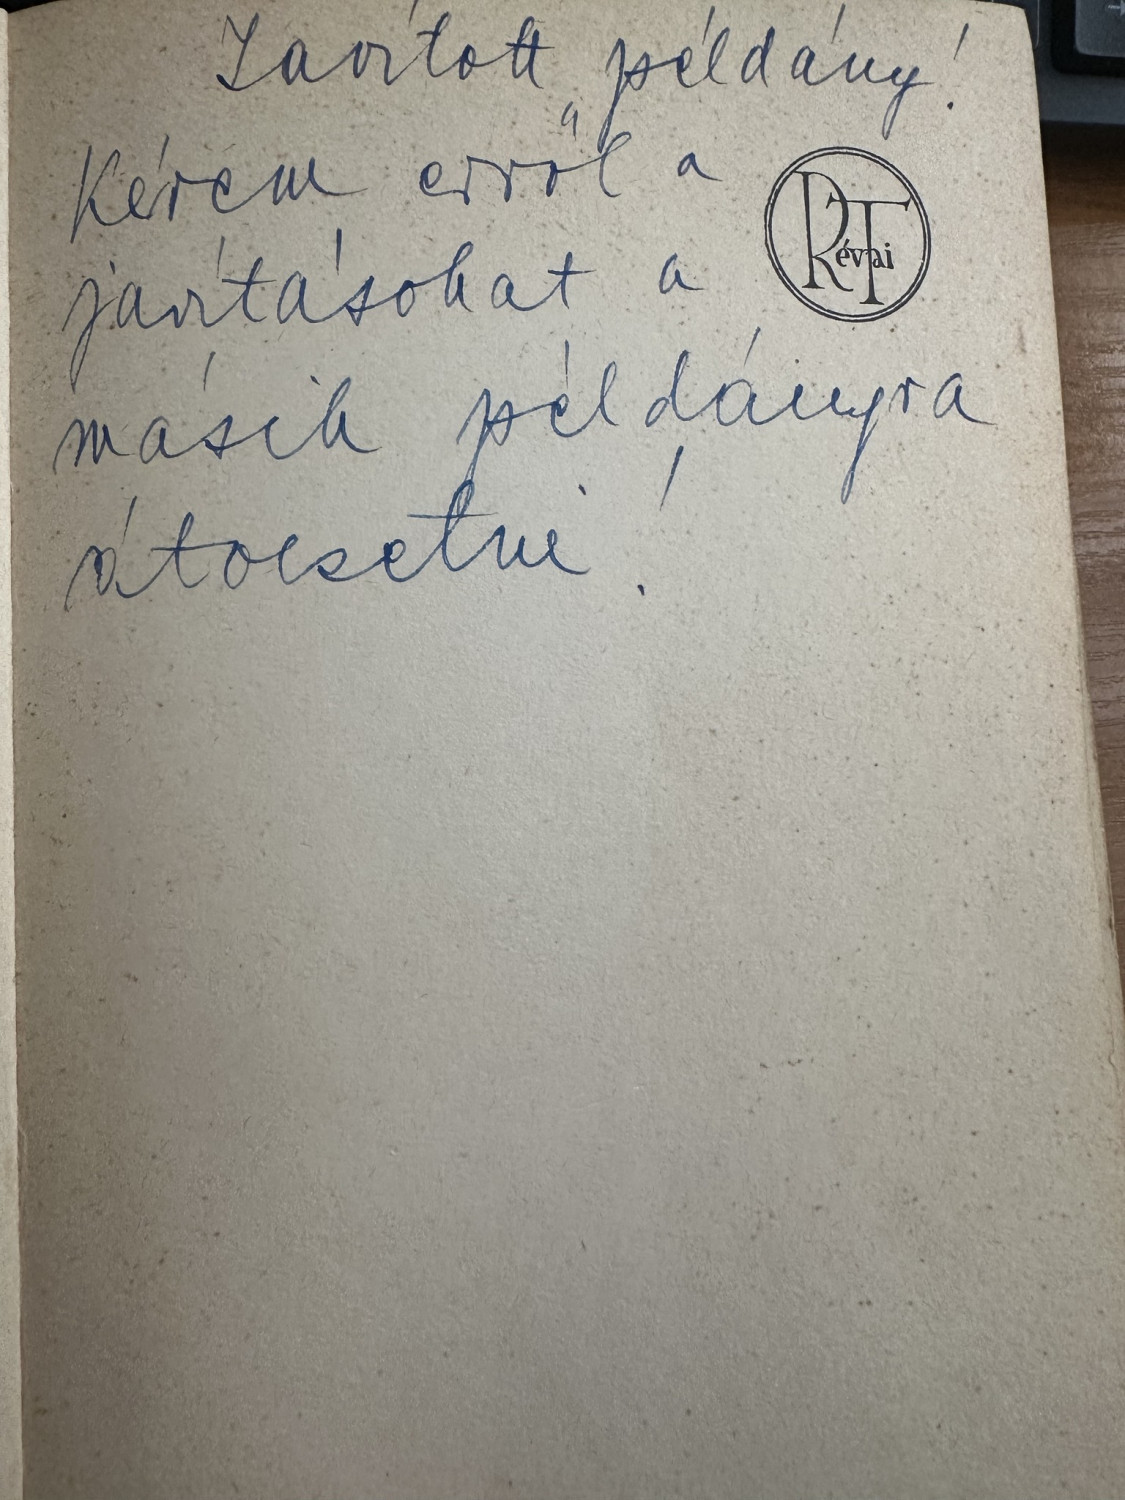 Javított példány!
Kérem erről a
javításokat a
Révai
RT
másik példányra
átvezetni!